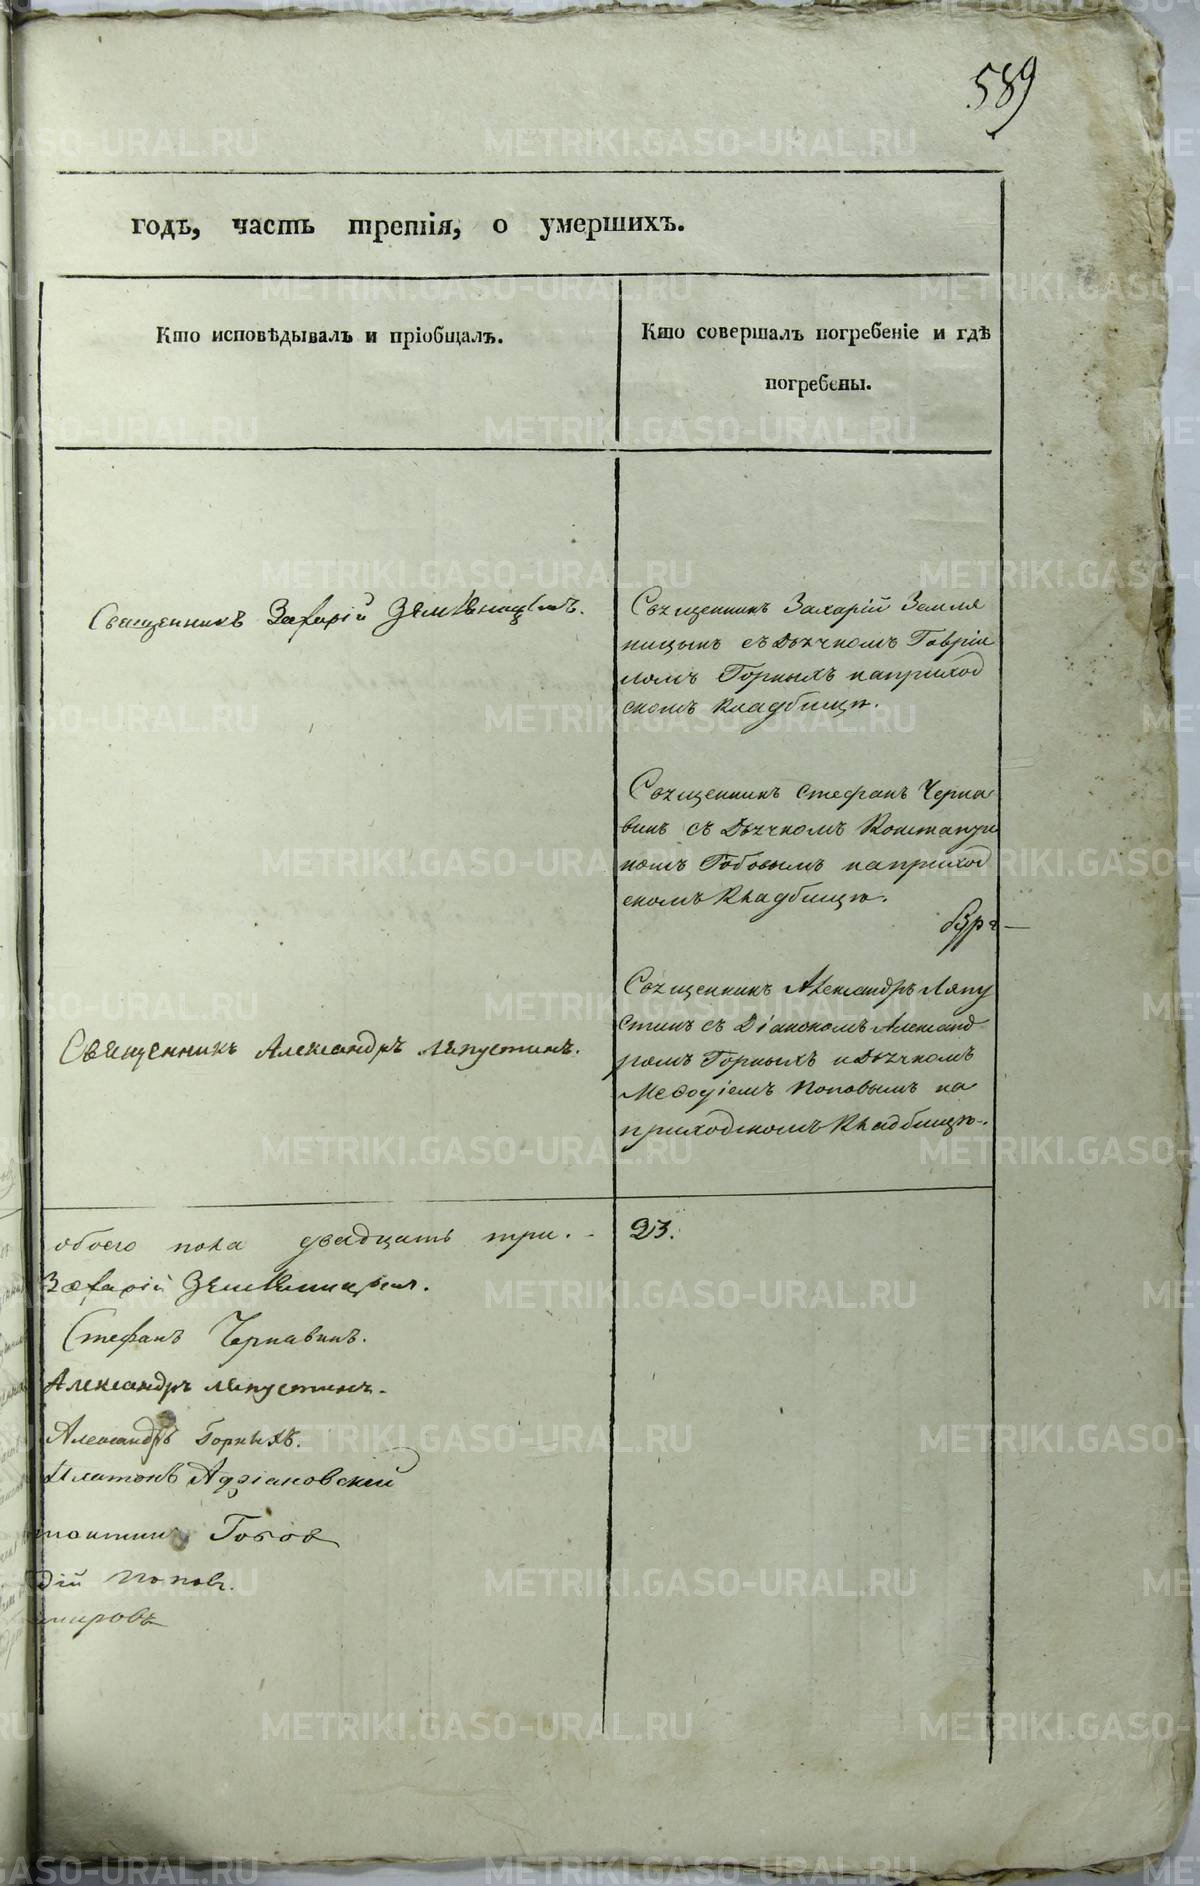 589
годъ, часть третія, о умершихъ.
Кто исповѣдывалъ и пріобщалъ.
Кто совершалъ погребеніе и гдѣ
погребены.
Священникъ Захарій Земляницынъ.
Священникъ Захарій Земля
ницынъ съ Дьячкомъ Гавріи
ломъ Горныхъ на приход
скомъ кладбищѣ.
Священникъ Стефанъ Черна
винъ съ Дьячкомъ Константи
номъ Гобовымъ на приход
скомъ Кладбищѣ.
Священникъ Александръ Ляпустинъ.
Священникъ Александръ Ляпу
стинъ съ Діакономъ Александ
ромъ Горныхъ и Дьячкомъ
Меѳодіемъ Поповымъ на
приходскомъ Кладбищѣ.
обоего пола двадцать три.
23.
Захарій Земляницынъ.
Стефанъ Чернавинъ.
Александръ Ляпустинъ.
Александръ Горныхъ.
Платонъ Адріановскій
Гобов
дій Попов.
мировъ
METRIKI.GASO-URAL.RU